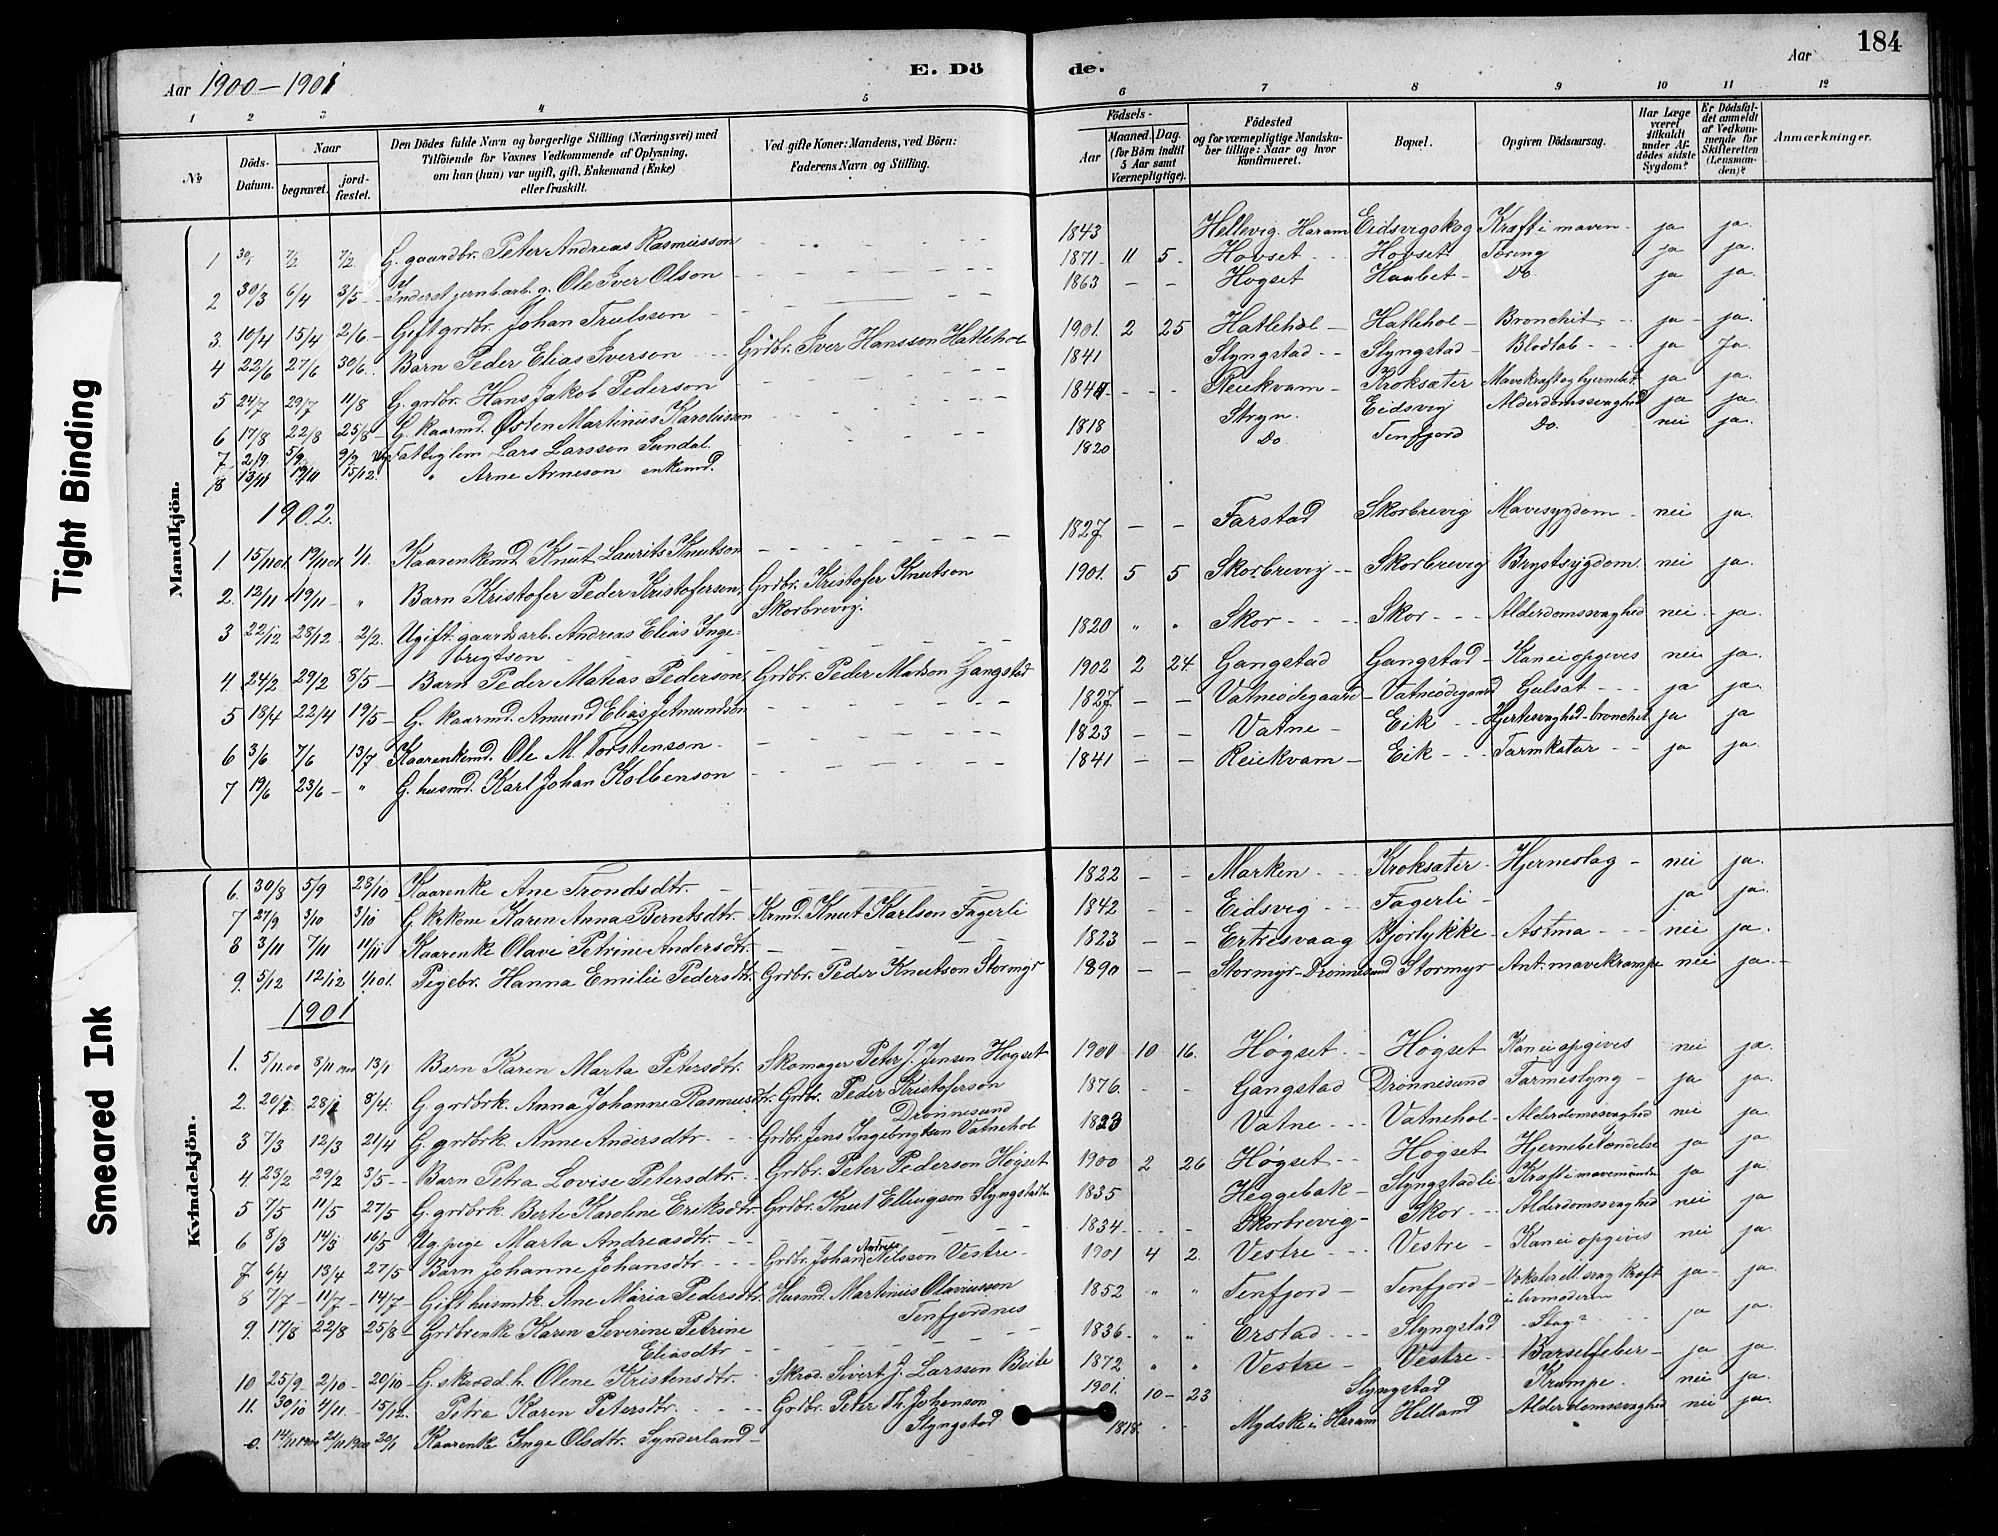 184
Aar 1900-1901
E. Dö
de.
Aar
1 2 3 4 5 6 7 8 9 10 11 12
№
Döds-Datum.
Naar
begravet.
jord-fæstet.
Den Dödes fulde Navn og borgerlige Stilling (Næringsvei) med
Tilföiende for Voxnes Vedkommende af Oplysning,
om han (hun) var ugift, gift, Enkemand (Enke)
eller fraskilt.
Ved gifte Koner: Mandens, ved Börn:
Faderens Navn og Stilling.
Födsels-
Aar
Maaned. Dag.
(for Börn indtil
5 Aar samt
Værnepligtige).
Födested
og for værnepligtige Mandska-
ber tillige: Naar og hvor
konfirmeret.
Bopæl.
Opgiven Dödsaarsag.
Har Læge
været
tilkaldt
under Af-
dödes sidste
Sygdom?
Er Dödsfal-
det anmeldt
af Vedkom-
mende for
Skifteretten
(Lensman-
den)?
Anmærkninger.
Tight Binding
Smeared Ink
Mandkjön.
1 7/2 7/2 G. gaardbr. Peter Andreas Rasmusson 1843 Hellevig. Haram Eidsvigskog Kræft i maven ja ja
2 30/3 6/4 3/5 Inderst jernbarb. g. Ole Iver Olson 1871 11 5 Hovset Hovset Tæring ja ja
3. 10/4 15/4 2/6 Gift grdbr. Johan Trulsson 1863 Hogset Haabet Do ja ja
4 22/6 27/6 30/6 Barn Peder Elias Iverson Grdbr. Iver Hansson Hatlehol 1901. 2 25 Hatlehol Hatlehol Bronchit ja ja.
5 24/7 29/7 11/8 G. grdbr. Hans Jakob Pederson 1841 Slyngstad Slyngstad Blodtab ja Ja
6 17/8 22/8 25/8 G. kaarmd. Østen Martinus Karolusson Reiekvam Kroksæter Mavekræft og hjernebet. ja ja
7 2/9 5/9 9/9 Fattiglem Lars Larsson Sundal 1818 Stryn. Eidsvig Alderdomssvaghed ja ja
8 13/11 19/11 15/12. " Arne Arneson enkemd. 1820 Do. Tenfjord Do. nei ja.
1902.
1 15/11 01. 19/11 01 1/1. Kaarenkemd Knut Laurits Knutson 1827 Farstad Skorbrevig Mavesygdom nei ja
2. 12/11 19/11 " Barn Kristofer Peder Kristoferson, Grdbr. Kristofer Knutson 1901. 5 5 Skorbrevig Skorbrevig Brystsygdom. nei ja.
Skorbrevig.
3 22/12 28/12 2/2. Ugift. gaardsarb. Andreas Elias Inge- 1820 " " Skor Skor Alderdomssvaghed nei ja.
brigtson
4. 24/2 29/2 8/5 Barn Peder Matias Pederson, Grdbr. Peder Matson Gangstad 1902 2 24. Gangstad Gangstad Kan ei opgives nei ja
5 18/4 22/4 19/5 G. kaarmd. Amund Elias Jetmundson 1827 Vatneødegaard Vatneødegaard Gulsot ja ja
6 3/6 7/6 13/7 Kaarenkemd. Ole M. Torstenson 1823 Vatne Eik Hjertesvaghed-bronchit ja ja
7 19/6 23/6 " G. husmd. Karl Johan Kolbenson 1841 Reiekvam Eik Tarmkatar ja ja.
Kvindekjön.
6. 30/8 5/9 28/10 Kaarenke Ane Trondsdtr. 1822 Marken Kroksæter Hjerneslag nei ja.
7 27/9 3/10 3/10 G. krkone Karen Anna Berntsdtr. Krmd. Knut Karlson Fagerli 1842 Eidsvig Fagerli ja ja.
8 3/11 7/11 11/11 Kaarenke Olave Petrine Andersdtr. 1823 Ertresvaag Bjørlykke Astma nei ja.
9. 5/12 12/12 1/1 01. Pigebr. Hanna Emilie Pedersdtr. Grdbr. Peder Knutson Stormyr 1890 Stormyr-Drønnesund Stormyr Ant. mavekrampe nei ja.
1901
1. 5/11.00 8/11 1900 13/1 Barn Karen Marta Petersdtr. Skomager Peter J. Jensen Høgset 1900 10 16. Høgset Høgset Kan ei opgives nei ja.
2. 20/1 28/1 8/4. G. grdbrk. Anna Johanne Rasmusdtr. Grdbr. Peder Kristoferson 1876. Gangstad Drønnesund Tarmeslyng ja ja
Drønnesund
3 7/3 12/3 21/4 G. grdbrk. Anne Andersdtr. Grdbr. Jens Ingebrigtsen Vatnehol 1823 Vatne Vatnehol Alderdomssvaghed nei ja
4 23/2 29/2 3/5 Barn Petra Lovise Petersdtr. Grdbr. Peter Pederson Høgset 1900 2 26 Høgset Høgset Hjernebetændelse ja ja.
5 7/5 11/5 27/5 G. grdbrk. Berte Karoline Eriksdtr. Grdbr. Knut Ellingson Slyngstadli 1835 Heggebak Slyngstadli Kræft i mavemunden ja ja
6 8/3 14/3 16/5 Ug. pige Marta Andreasdtr. 1834 Skorbrevig Skor Alderdomssvaghed nei ja
7 6/4 13/4 27/5 Barn Johanne Johansdtr. Grdbr. Johan Andreas Nilsson Vestre 1901 4 2. Vestre Vestre Kan ei opgives nei ja
8 7/7 11/7 14/7 Gift husmdk. Ane Maria Pedersdtr. Husmd. Martinus Olavusson 1852 " " Tenfjord Tenfjord kræft i livmoderen ja ja.
Tenfjordnes
9. 17/8 22/8 25/8 Grdbrenke Karen Severine Petrine 1836 " " Erstad Slyngstad Slag? ja ja
Eliasdtr
10 25/9 2/10 20/10 G. skrædd.h. Olene Kristensdtr. Skræd. Sivert J. Larsson Beite 1872 " " Vestre Vestre Barselfeber ja ja
11. 30/10 4/11. 15/12. Petra Karen Petersdtr. Grdbr. Peter Th. Johanson 1901. 10 23 Slyngstad Krampe. nei ja.
Slyngstad
14/11 1900 21/11 1900 20/1 Kaarenke Inge Olsdtr. Synderland 1818. Mydske i Haram Helland Alderdomssvaghed nei ja.